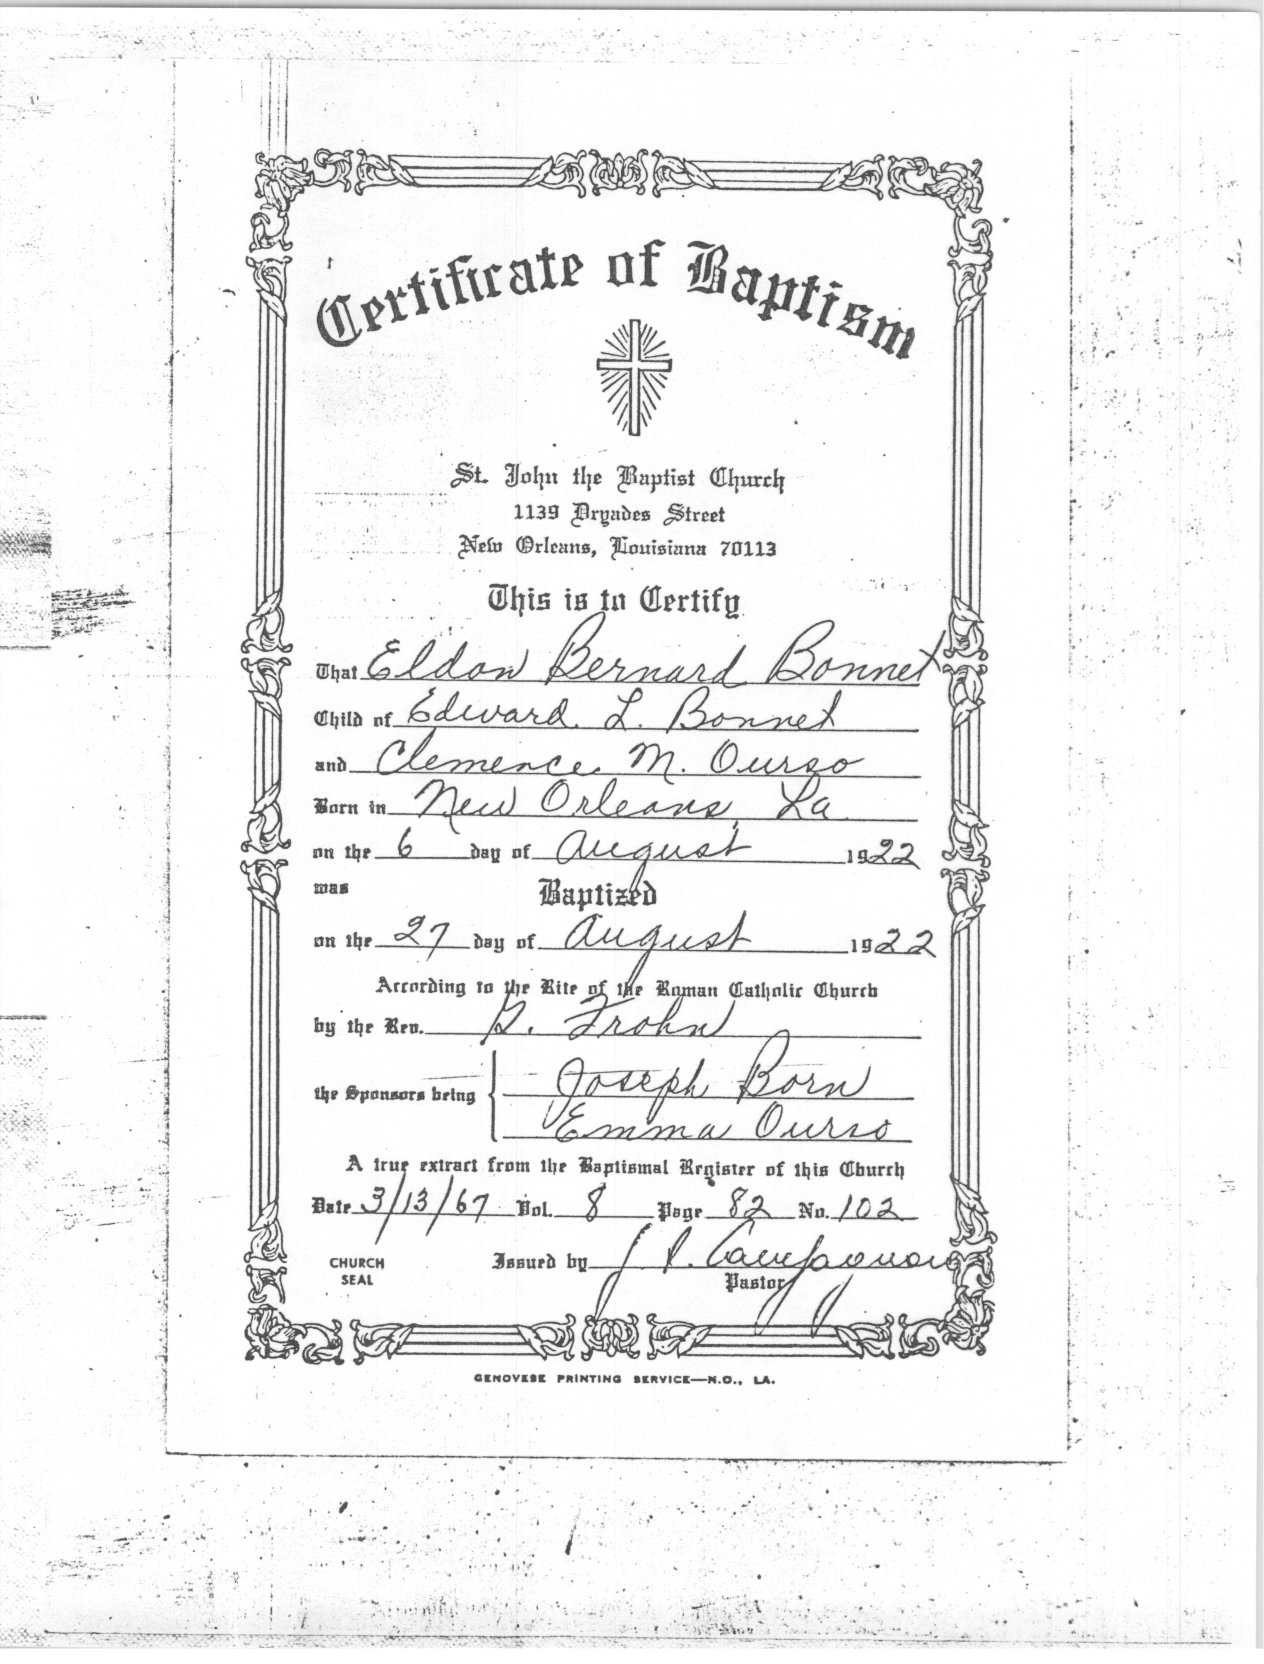 Certificate of Baptism
St. John the Baptist Church
1139 Dryades Street
New Orleans, Louisiana 70113
This is to Certify
That Eldon Bernard Bonnet
Child of Edward L. Bonnet
and Clemence M. Ourso
Born in New Orleans, La.
on the 6 day of August 1922
was Baptized
on the 27 day of August 1922
According to the Rite of the Roman Catholic Church
by the Rev. G. Frohn
the Sponsors being Joseph Born
Emma Ourso
A true extract from the Baptismal Register of this Church
Date 3/13/67 Vol. 8 Page 82 No. 102
CHURCH SEAL
Issued by J.
Pastor
GENOVESE PRINTING SERVICE—N.O., LA.